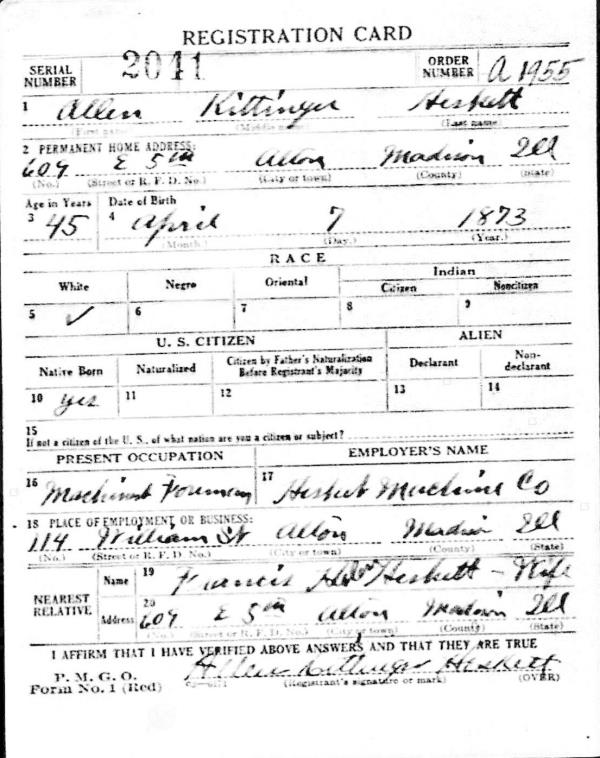 REGISTRATION CARD
SERIAL NUMBER 2041 ORDER NUMBER A 1955
1 Allen Kittinger Heskett
(First name) (Middle name) (Last name)
2 PERMANENT HOME ADDRESS:
609 E 5th Alton Madison Ill
(No.) (Street or R. F. D. No.) (City or town) (County) (State)
Age in Years Date of Birth
3 45 4 April 7 1873
(Month.) (Day.) (Year.)
RACE
White Negro Oriental Indian
Citizen Noncitizen
5 ✓ 6 7 8 9
U. S. CITIZEN ALIEN
Native Born Naturalized Citizen by Father's Naturalization Before Registrant's Majority Declarant Non-declarant
10 yes 11 12 13 14
15
If not a citizen of the U. S., of what nation are you a citizen or subject?
PRESENT OCCUPATION EMPLOYER'S NAME
16 Machinist Foreman 17 Heskett Machine Co
18 PLACE OF EMPLOYMENT OR BUSINESS:
114 William St Alton Madison Ill
(No.) (Street or R. F. D. No.) (City or town) (County) (State)
NEAREST RELATIVE
Name 19 Francis Heskett - Wife
Address 20 609 E 5th Alton Madison Ill
(No.) (Street or R. F. D. No.) (City or town) (County) (State)
I AFFIRM THAT I HAVE VERIFIED ABOVE ANSWERS AND THAT THEY ARE TRUE
P. M. G. O.
Form No. 1 (Red) Allen Kittinger Heskett
(Registrant's signature or mark) (OVER)